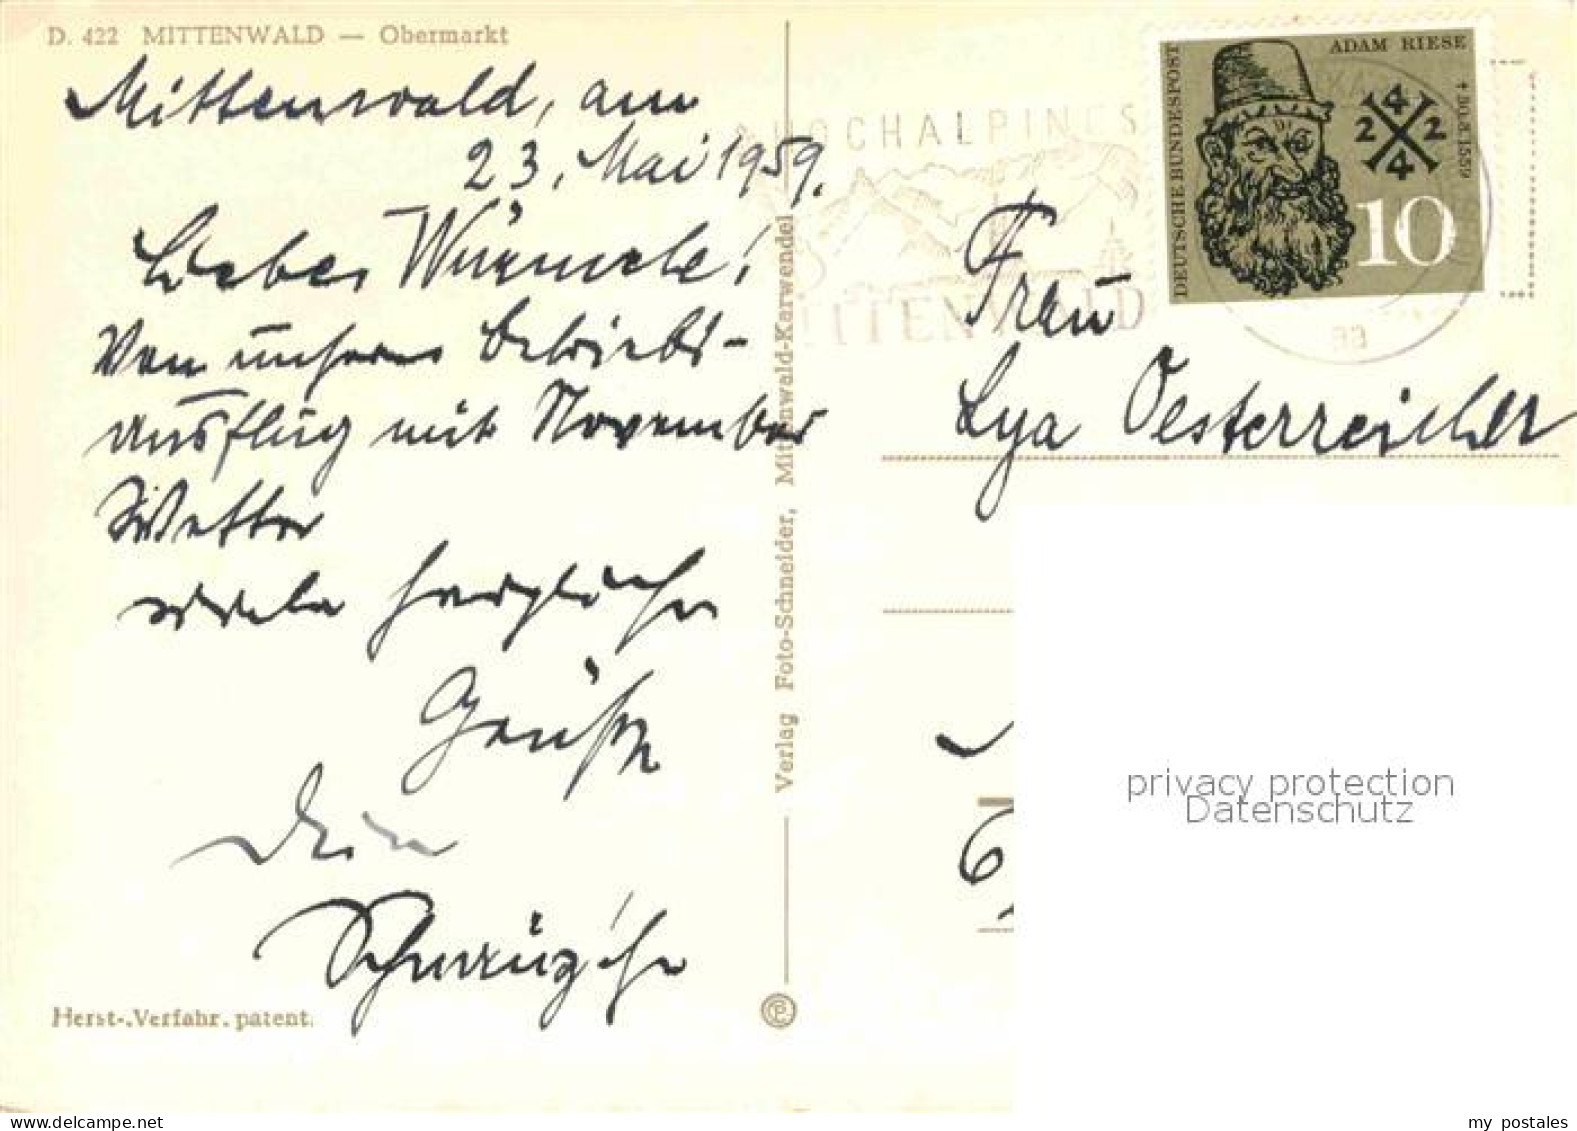 D. 422 MITTENWALD — Obermarkt
Mittenwald, am
23. Mai 1959.
Liebes Würmele!
Von unserem Betriebs-
ausflug mit November
Wetter
viele herzliche
Grüße
Dein
Verlag Foto-Schneider, Mittenwald-Karwendel
Herst-.Verfahr. patent.
HOCHALPINES
MITTENWALD
aa
DEUTSCHE BUNDESPOST
ADAM RIESE
† 30.3.1559
4
2 2
4
10
Frau
Lya Oesterreicher
privacy protection
Datenschutz
my postales